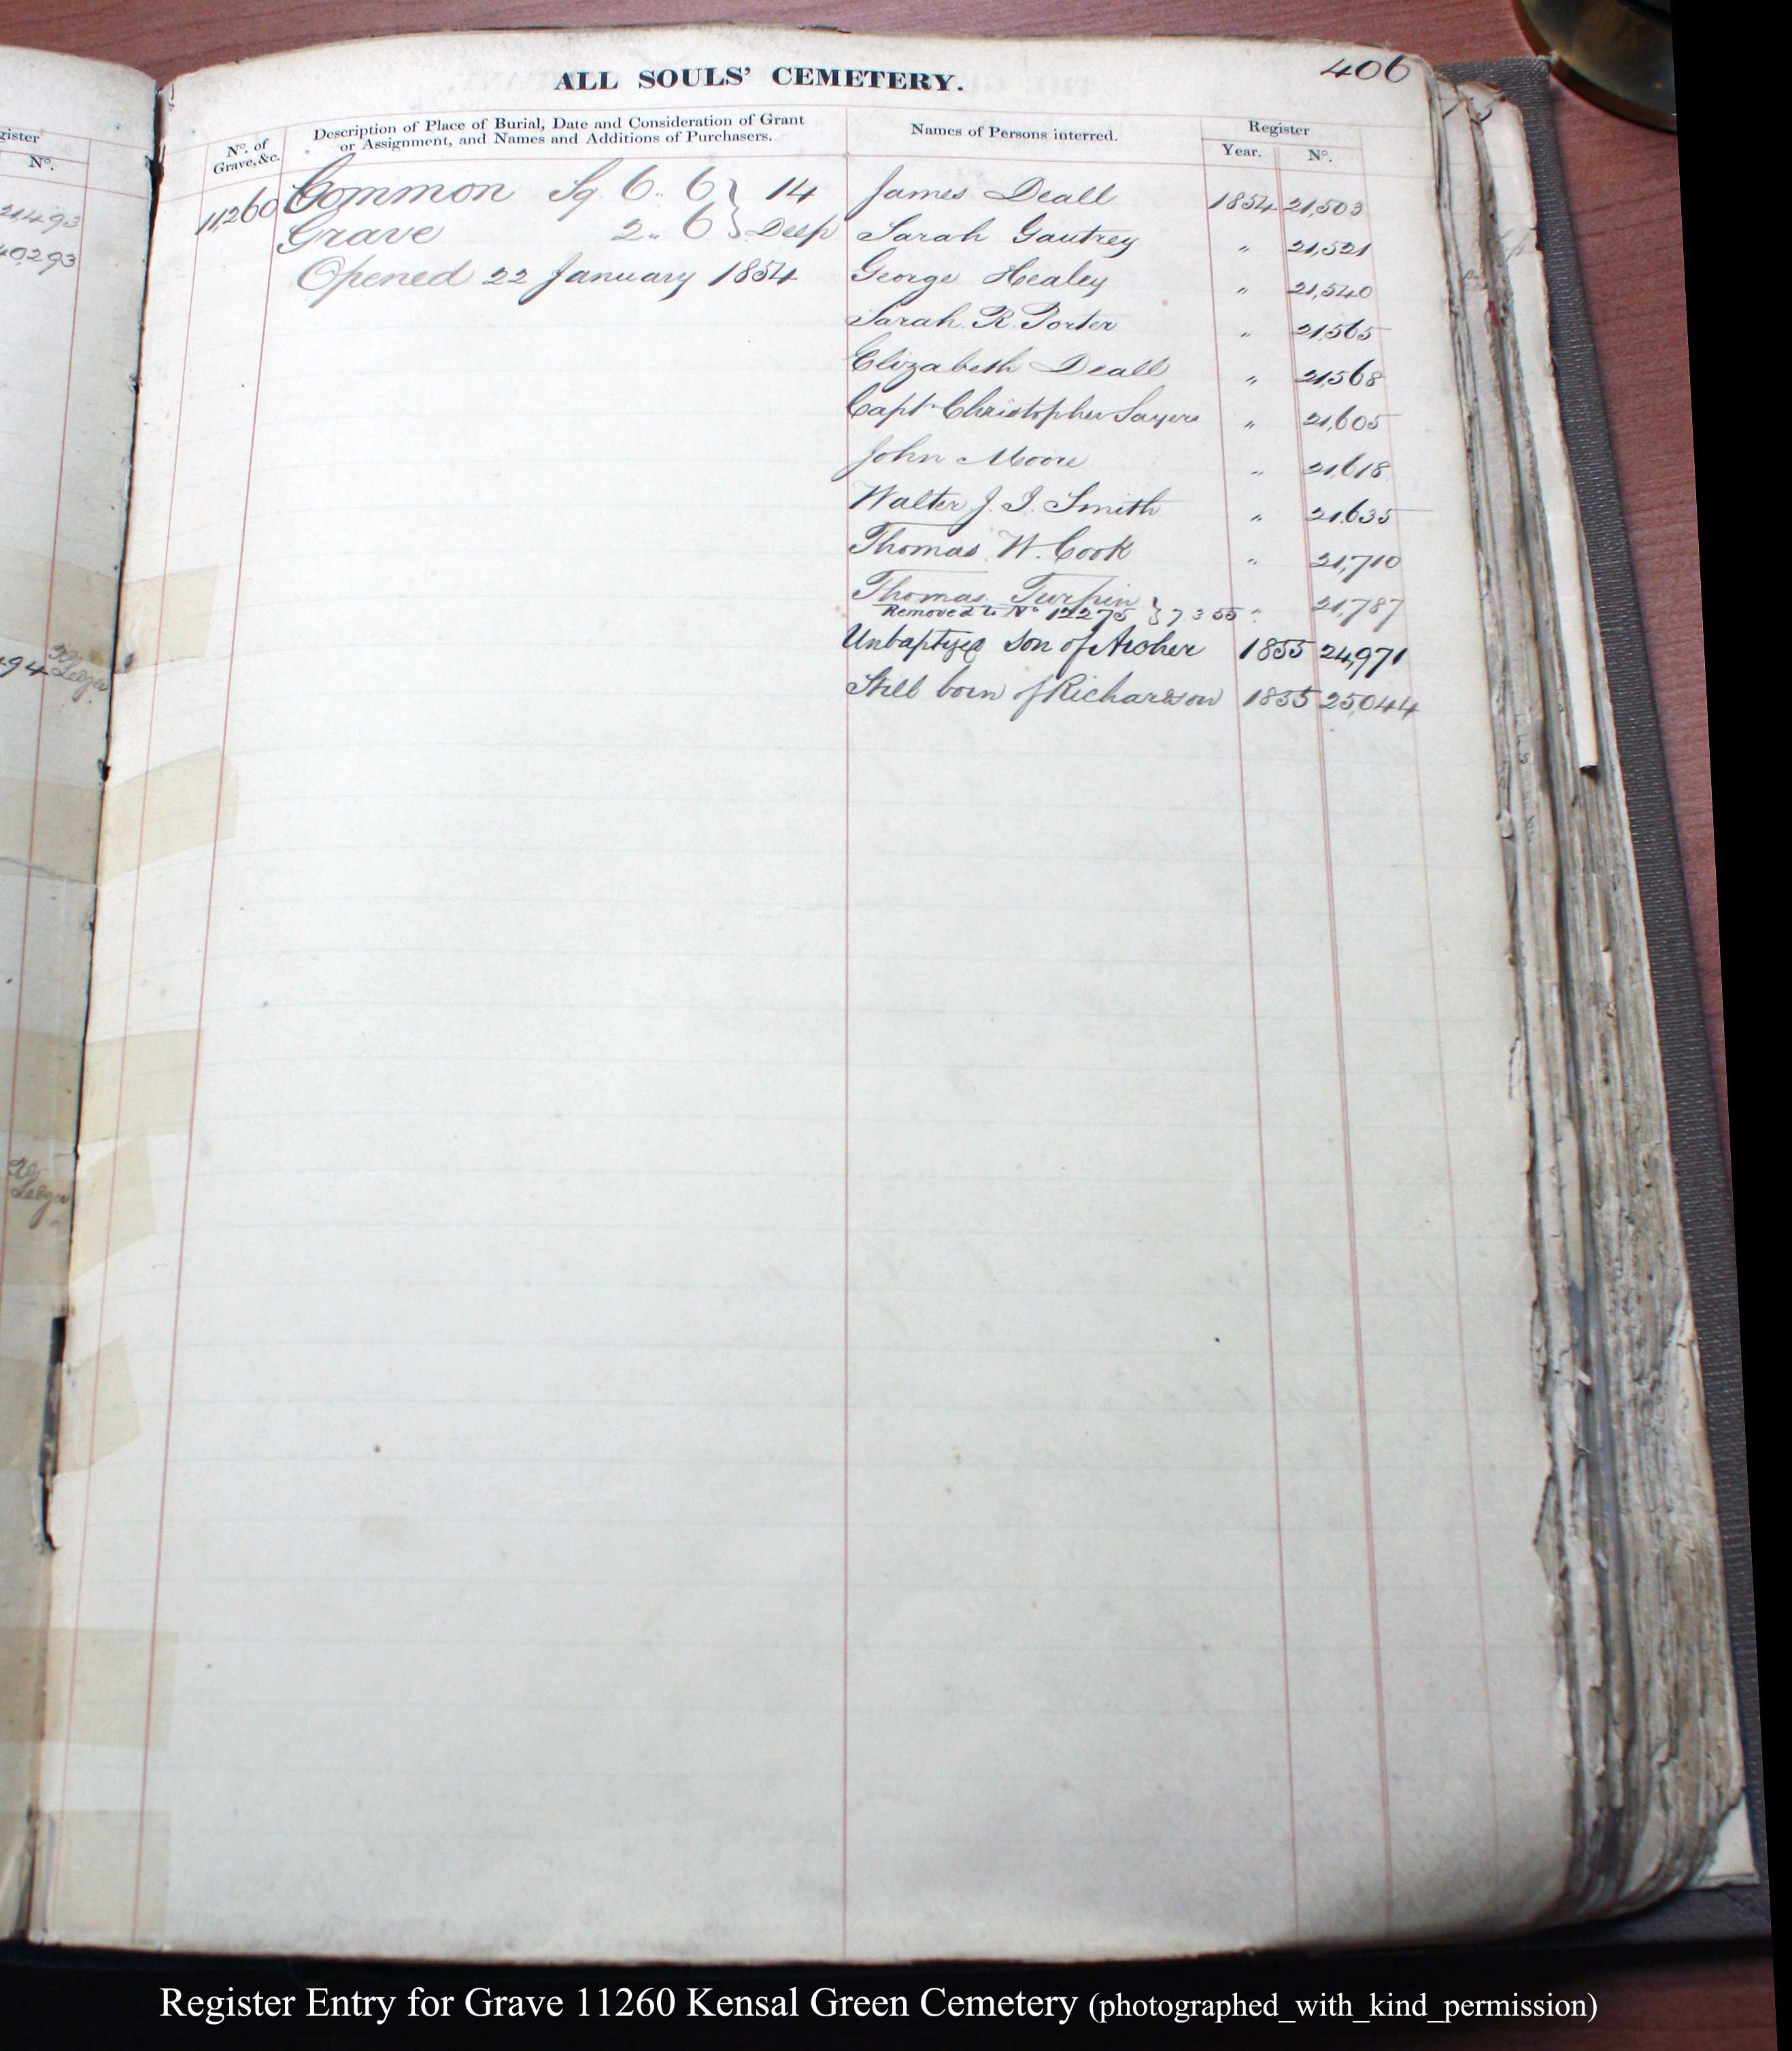 gister
Nº.
21493
40293
194 
Ledger
Ledger
406
ALL SOULS' CEMETERY.
Nº. of Grave, &c.
Description of Place of Burial, Date and Consideration of Grant
or Assignment, and Names and Additions of Purchasers.
Names of Persons interred.
Register
Year. Nº.
11,260 Common Sq. 6 .. 6 } 14 James Deall 1854 21,503
Grave 2 .. 6 } Deep Sarah Gautrey " 21,521
Opened 22 January 1854 George Healey " 21,540
Sarah R. Porter " 21,565
Elizabeth Deall " 21,568
Capt. Christopher Sayers " 21,605
John Moore " 21,618
Walter J. I. Smith " 21,635
Thomas W. Cook " 21,710
Thomas Turpin " 21,787
Removed to Nº 12275 } 7 3 55
Unbaptized son of Archer 1855 24,971
Still born of Richardson 1855 25,044
Register Entry for Grave 11260 Kensal Green Cemetery (photographed_with_kind_permission)